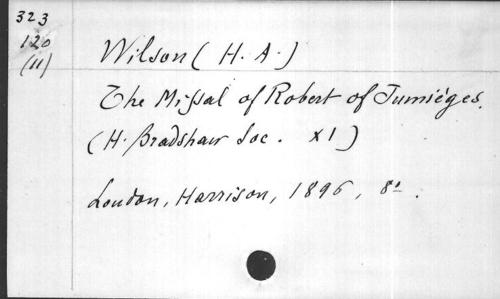 323
120
(11)
Wilson (H. A.)
The Missal of Robert of Jumièges.
(H. Bradshaw Soc. XI)
London, Harrison, 1896, 8º.